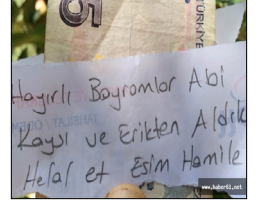 5
TÜRKİYE
Hayırlı Bayramlar Abi
Kaysı ve Erikten Aldık
Helal et Eşim Hamile
www.haber61.net